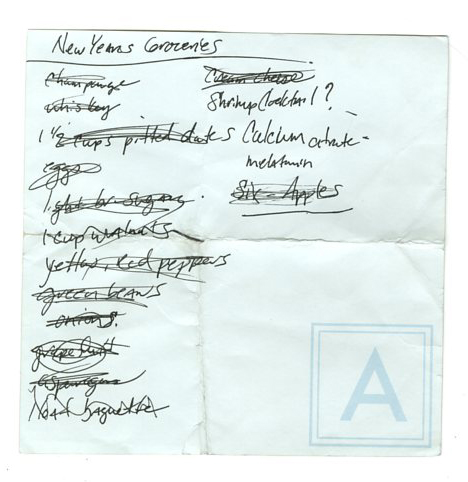 New Years Groceries
Champagne
whiskey
1 1/2 cups pitted dates
eggs
light br. sugar.
1 cup walnuts
yellow, red peppers
green beans
onions.
grapefruit
asparagus
bread baguette
Cream cheese
Shrimp Cocktail?
Calcium citrate -
melatonin
Six - Apples
A